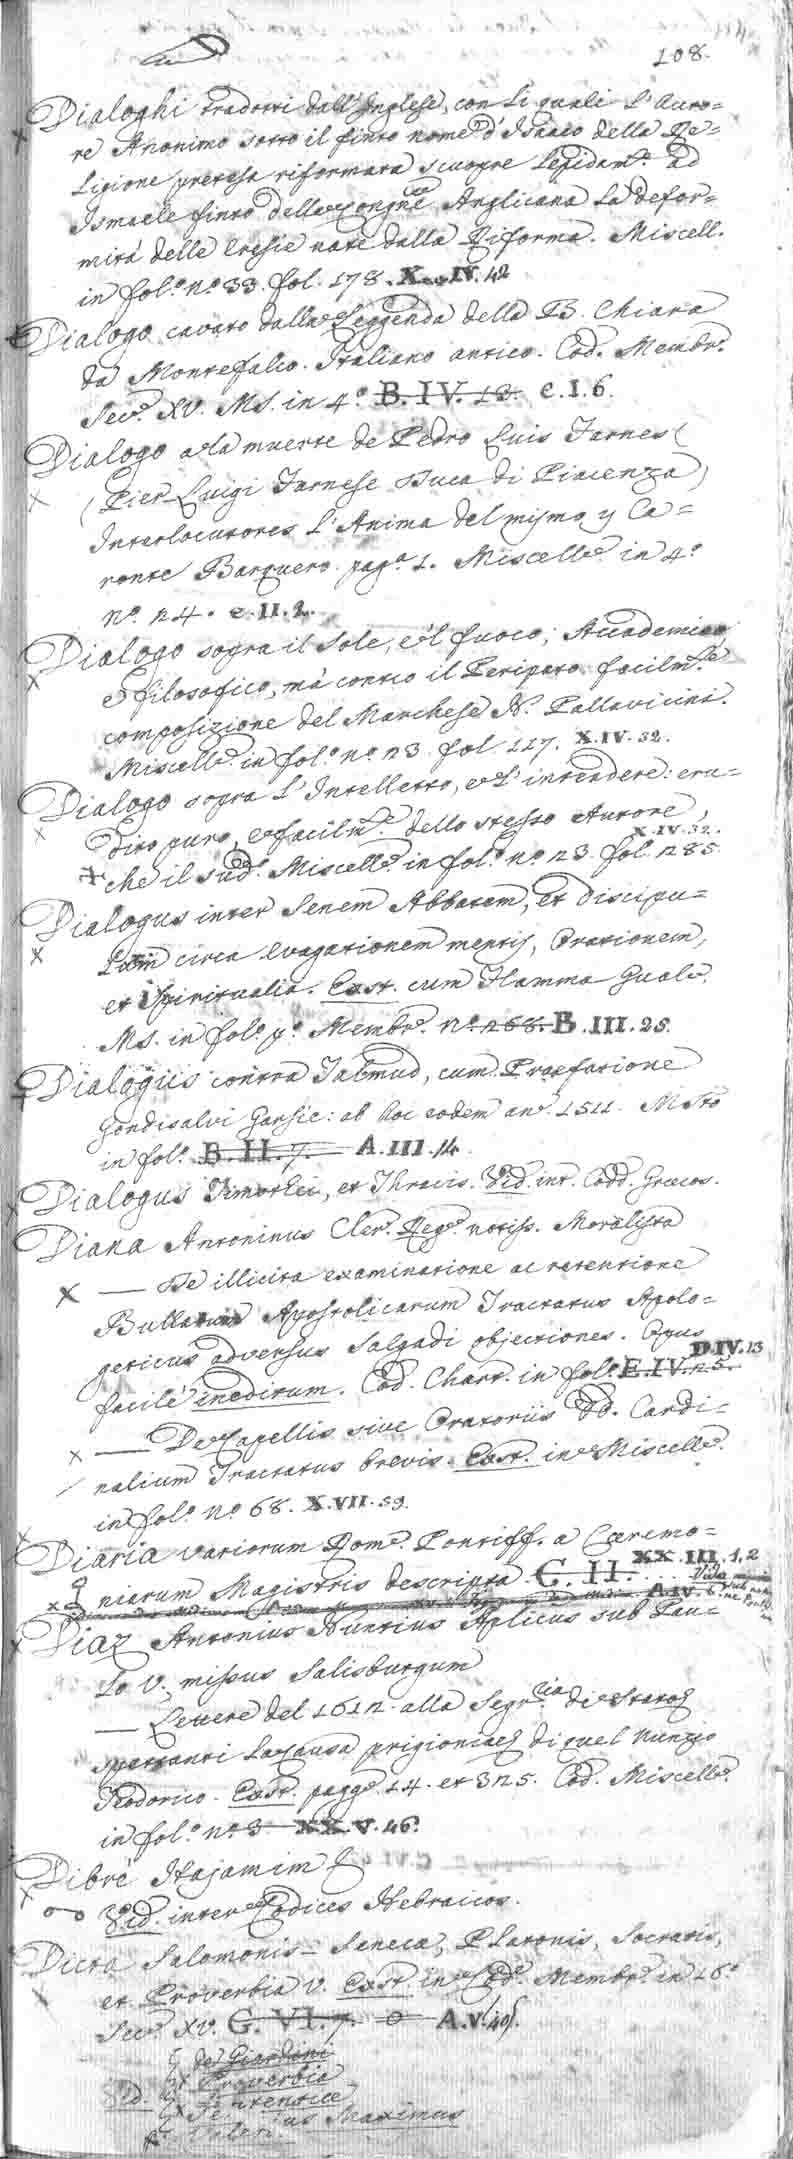 108.
Dialoghi tradotti dall'Inglese, con li quali l'Auto=
re Anonimo sotto il finto nome d'Isaaco della Re=
ligione pretesa riformata scuopre lepidam.e ad
Ismaele finto della Congne Anglicana la defor=
mità delle Eresie nate dalla Riforma. Miscell.
in fol.o n.o 33. fol. 178. X.IV.42
Dialogo cavato dalla Leggenda della B. Chiara
da Montefalco. Italiano antico. Cod. Membr.
Sec.o XV. MS. in 4.o B.IV.13. e.I.6.
Dialogo a la muerte de Pedro Luis Farnes
(Pier Luigi Farnese Duca di Piacenza)
Interlocutores L'Anima del mismo y Ca=
ronte Barquero. pag.a 1. Miscell.o in 4.o
n.o 24. e.II.2.
Dialogo sopra il Sole, e'l fuoco; Accademico,
e filosofico, mà contro il Peripato facilm.te
composizione del Marchese N. Pallavicini.
Miscell.o in fol.o n.o 23 fol. 127. X.IV.32.
Dialogo sopra l'Intelletto, e l'intendere: eru=
dito puro, e facilm.te dello stesso Autore,
che il sud.o Miscell.o in fol.o n.o 23. fol. 285. X.IV.32.
Dialogus inter Senem Abbatem, et discipu=
lum circa evagationem mentis, Orationem,
et Spiritualia. Exst. cum Flamma Gualv.
MS. in fol.o p.o Membr. n.o 268. B.III.25.
Dialogus contra Talmud, cum Praefatione
Gondisalvi Garsie: ab hoc eodem an.o 1511. MSto
in fol.o B.II.7. A.III.14.
Dialogus Timothei, et Thracis. Vid. int. Codd. Græcos.
Diana Antoninus Cler. Reg. notiss. Moralista
— De illicita examinatione ac retentione
Bullarum Apostolicarum Tractatus Apolo=
geticus adversus Salgadi objectiones. Opus
facilè ineditum. Cod. Chart. in fol.o E.IV.25. D.IV.13
— De Capellis sive Oratoriis DD. Cardi=
nalium Tractatus brevis. Exst. in Miscell.
in fol.o n.o 68. X.VII.59.
Diaria variorum Rom. Pontiff. a Cæremo=
niarum Magistris descripta C.II. XX.III.1.2
Diaz Antonius Nuntius Aplicus sub Pau=
lo V. missus Salisburgum
— Lettere del 1612. alla Segr.ia di Stato
spettanti la Causa prigionia di quel
Exst. pagg. 14. et 325. Cod. Miscell.
in fol.o n.o 3 XX.V.46.
Dibrè Hajamim
Vid. inter Codices Hebraicos.
Dicta Salomonis - Seneca, Platonis, Socratis,
et Proverbia V. Exst. in Cod. Membr. in 16.o
Sec. XV. G.VI.7. A.V.
Vid. Proverbia
Sententiæ
Maximus